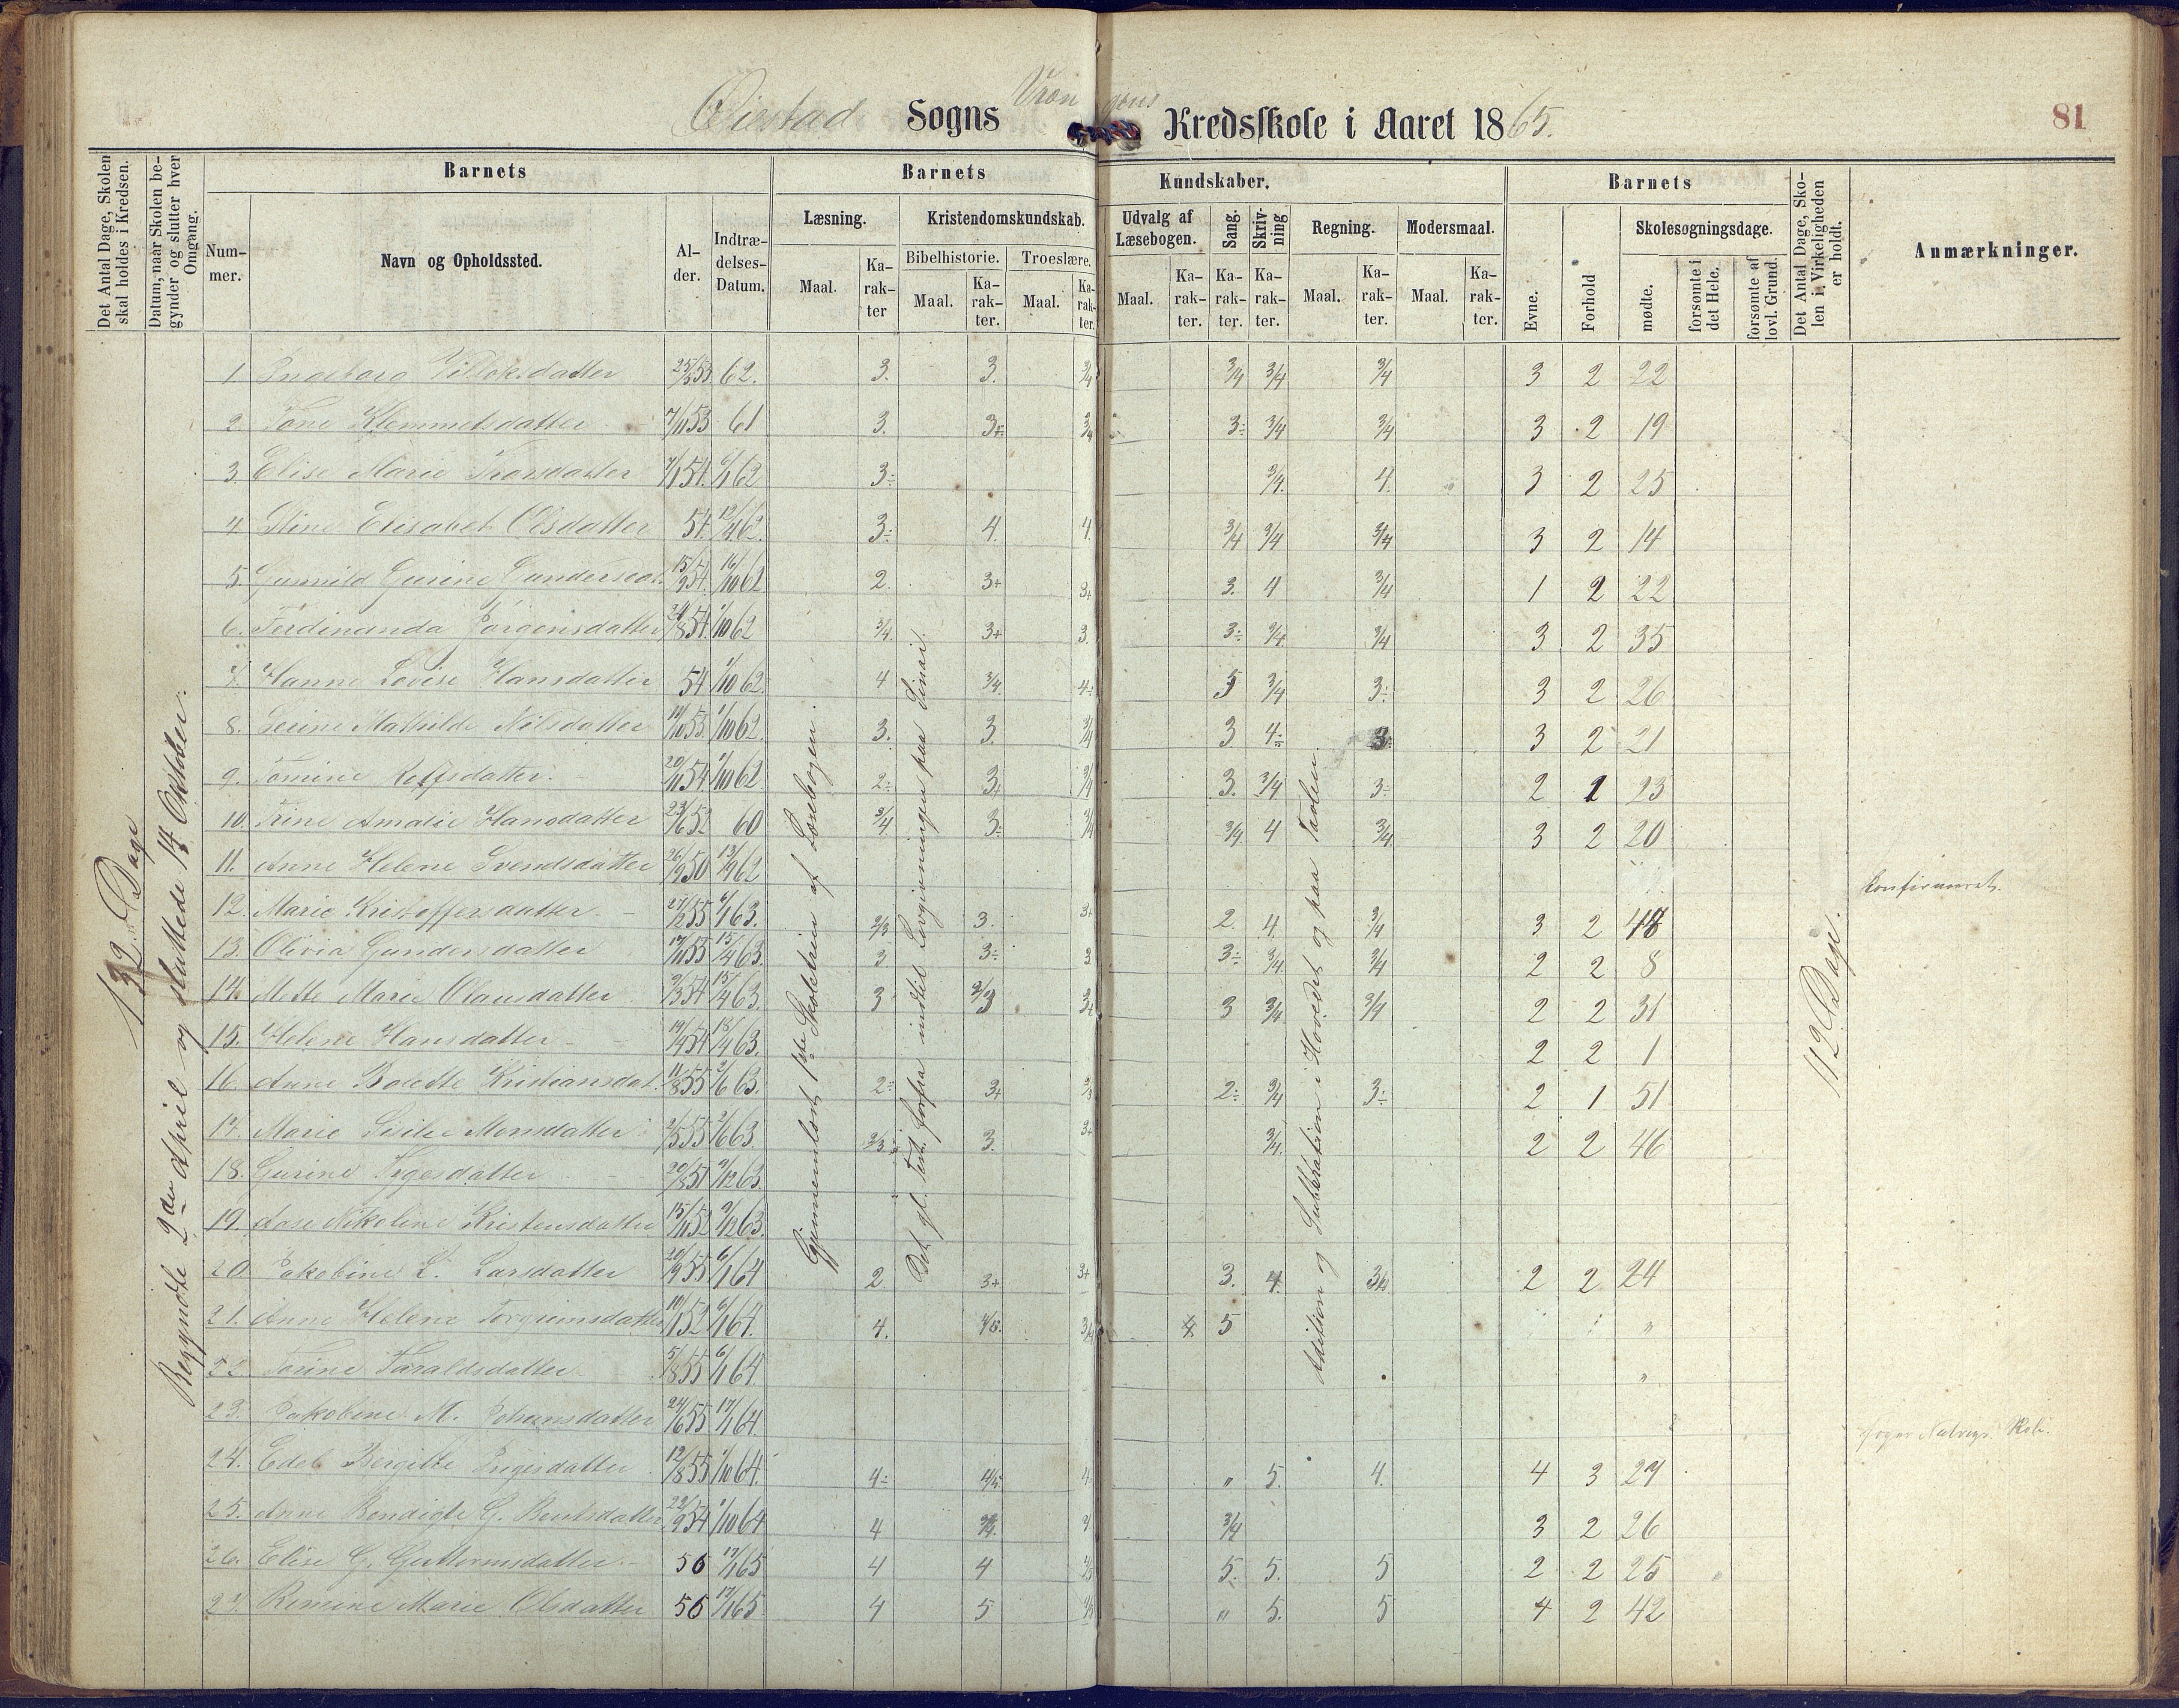 Øiestad Sogns Vrængens Kredsskole i Aaret 1865.
81
Det Antal Dage, Skolen skal holdes i Kredsen.
Datum, naar Skolen begynder og slutter hver Omgang.
Barnets
Nummer.
Navn og Opholdssted.
Alder.
Indtrædelses-Datum.
Barnets Kundskaber.
Læsning.
Maal.
Karakter
Kristendomskundskab.
Bibelhistorie.
Maal.
Karakter.
Troeslære.
Maal.
Karakter.
Udvalg af Læsebogen.
Maal.
Karakter.
Sang.
Karakter.
Skrivning
Karakter.
Regning.
Maal.
Karakter.
Modersmaal.
Maal.
Karakter.
Barnets
Evne.
Forhold
Skolesøgningsdage.
mødte.
forsømte i det Hele.
forsømte af lovl. Grund.
Det Antal Dage, Skolen i Virkeligheden er holdt.
Anmærkninger.
132 Dage
Begyndte 2den April og sluttede 14 Oktober.
Gjennemlæst 1ste Skoletrin af Læsebogen.
Det gl. Test. forfra indtil Lovgivningen paa Sinai.
Addition og Subtraktion i Hovedet og paa Tavlen.
112 Dage.
1. Ingeborg datter 25/5 53 62. 3. 3. 3/4 3/4 3/4 3/4 3 2 22
2. Tone Klemmetsdatter 7/11 53 61 3. 3+ 3/4 3÷ 3/4 3/4 3 2 19
3. Elise Marie Thorsdatter 7/1 54. 6/1 62 3÷ 3/4. 4. 3 2 25
4. Stine Elisabet Olsdatter 54. 12/4 62. 3÷ 4. 4. 3/4 3/4 3/4 3 2 14
5. Gunnild Gurine Gundersdat. 15/9 54. 16/10 62 2. 3+ 3+ 3. 4 3/4 1 2 22
6. Ferdinanda Jørgensdatter 8 54. 1/10 62 3/4. 3+ 3. 3÷ 3/4 3/4 3 2 35
7. Hanne Lovise Hansdatter 54 1/10 62. 4 3/4. 4÷ 5 3/4 3÷ 3 2 26
8. Serine Mathilde Nilsdatter 10 53. 1/10 62. 3. 3. 3/4 3 4÷ 3÷ 3 2 21
9. Tomine Rolfsdatter. 20/11 54. 1/10 62 2÷ 3+ 3/4 3. 3/4 3÷ 2 1 23
10. Trine Amalie Hansdatter 23/6 52 60 3/4 3÷ 3/4 3/4 4 3/4 3 2 20
11. Anne Helene Svendsdatter 26/9 50 13/9 62 Konfirmeret.
12. Marie Kristoffersdatter. 27/2 55 6/1 63. 2/3 3. 3+ 2. 4. 3/4 3 2
13. Olivia Gundersdatter 17/11 55 15/4 63. 3 3÷ 3 3÷ 3/4 3/4 2 2 8
14. Mette Marie Olausdatter 2/3 54 15/4 63. 3 2/3 3+ 3 3/4 3/4 2 2 31
15. Helene Hansdatter 19/4 54 18/4 63. 2 2 1
16. Anne Bolette Kristiansdat. 11/8 55 2/6 63. 2÷ 3+ 2/3 2÷ 3/4 3÷ 2 1 51
17. Marie Sisilie Monsdatter 2/5 55 2/6 63 2/3÷ 3. 3+ 3/4. 2 2 46
18. Gurine Tygesdatter 20/8 51 9/12 63.
19. Aase Nikoline Kristensdatter 15/11 52 9/12 63.
20 Jakobine L. Larsdatter 20/9 55 6/1 64 2. 3+ 3+ 3. 4. 2 2 24
21. Anne Helene Torgrimsdatter 10/1 52 6/1 64. 4. 4/5. 3/4 4 5 "
22. Torine Taraldsdatter 5/8 55 6/1 64. "
23. Jakobine M. Johansdatter 24/6 55 17/1 64. Skole.
24. Edel Bergitte Ingersdatter 12/8 55 1/10 64. 4÷ 4/5 4. " 5. 4. 4 3 27
25. Anne Bendigte G. Bentsdatter 22/9 54 1/10 64 4 3/4. 4 3/4 3 2 26
26. Elise G. Guttormsdatter. 56 17/1 65 4 4 4/5 5. 5. 5 2 2 25
27. Romine Marie Olsdatter 56 17/1 65 4 5 4/5 " 5. 5 4 2 42